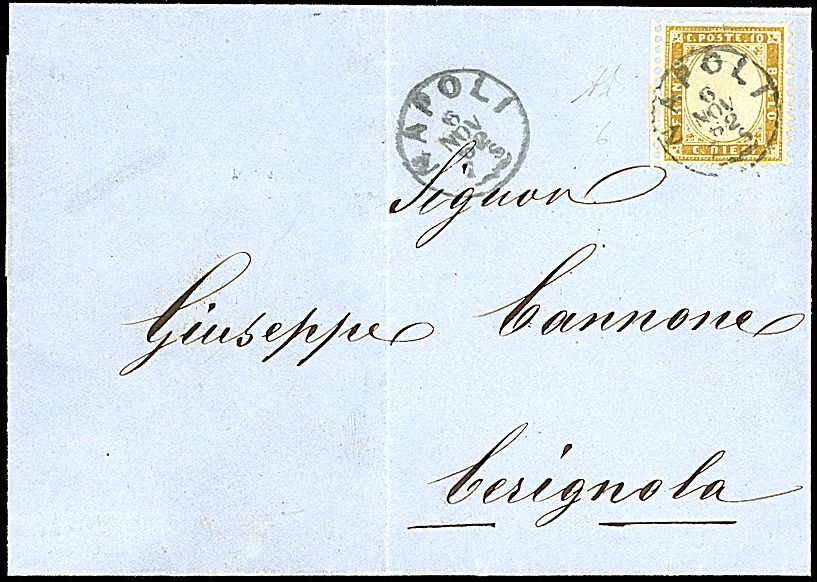 C. POSTE. 10
C. DIECI
NAPOLI
6
NOV
62
NAPOLI
6
NOV
62
6
Signor
Giuseppe Cannone
Cerignola